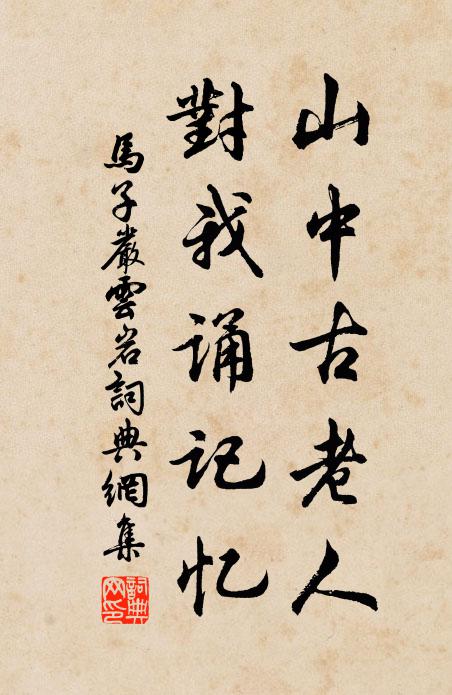 山中古老人
對我诵记忆
馬子嚴雲岩詞典網集
詞典
网印